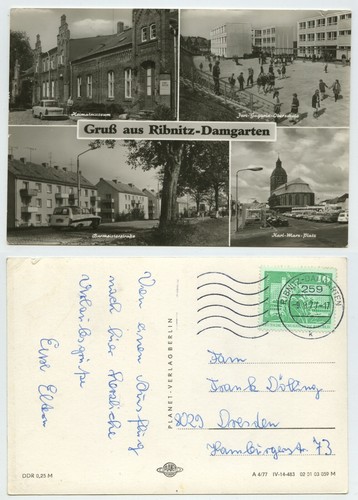 Heimatmuseum
Juri-Gagarin-Oberschule
Gruß aus Ribnitz-Damgarten
Karl-Marx-Platz
Von einem Ausflug
nach hier herzliche
Urlaubsgrüße
Eure Eltern
PLANET-VERLAG BERLIN
10
259
RIBNITZ-DAMGARTEN
Fam.
Frank Döllling
8029 Dresden
Hamburgerst. 73
DDR 0,25 M
A 4/77 IV-14-483 02 01 03 059 M